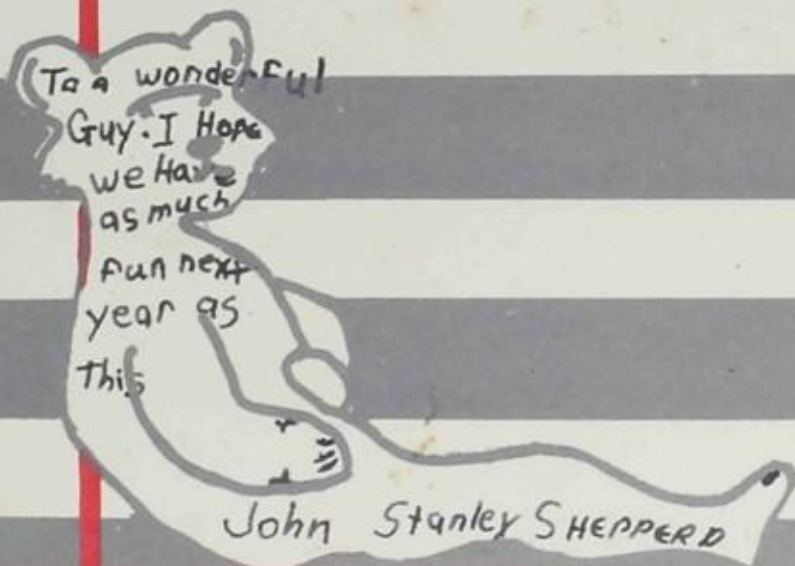 To a wonderful
Guy. I Hope
we Have
as much
fun next
year as
This
John Stanley SHEPPERD